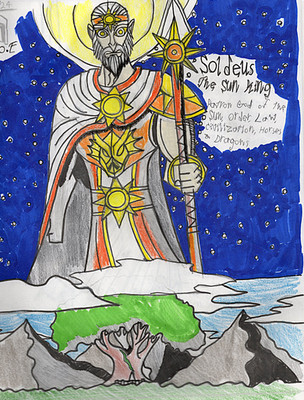 Soldeus
The Sun King
Patron God of the
Sun Order Law,
civilization, Horses
& Dragons